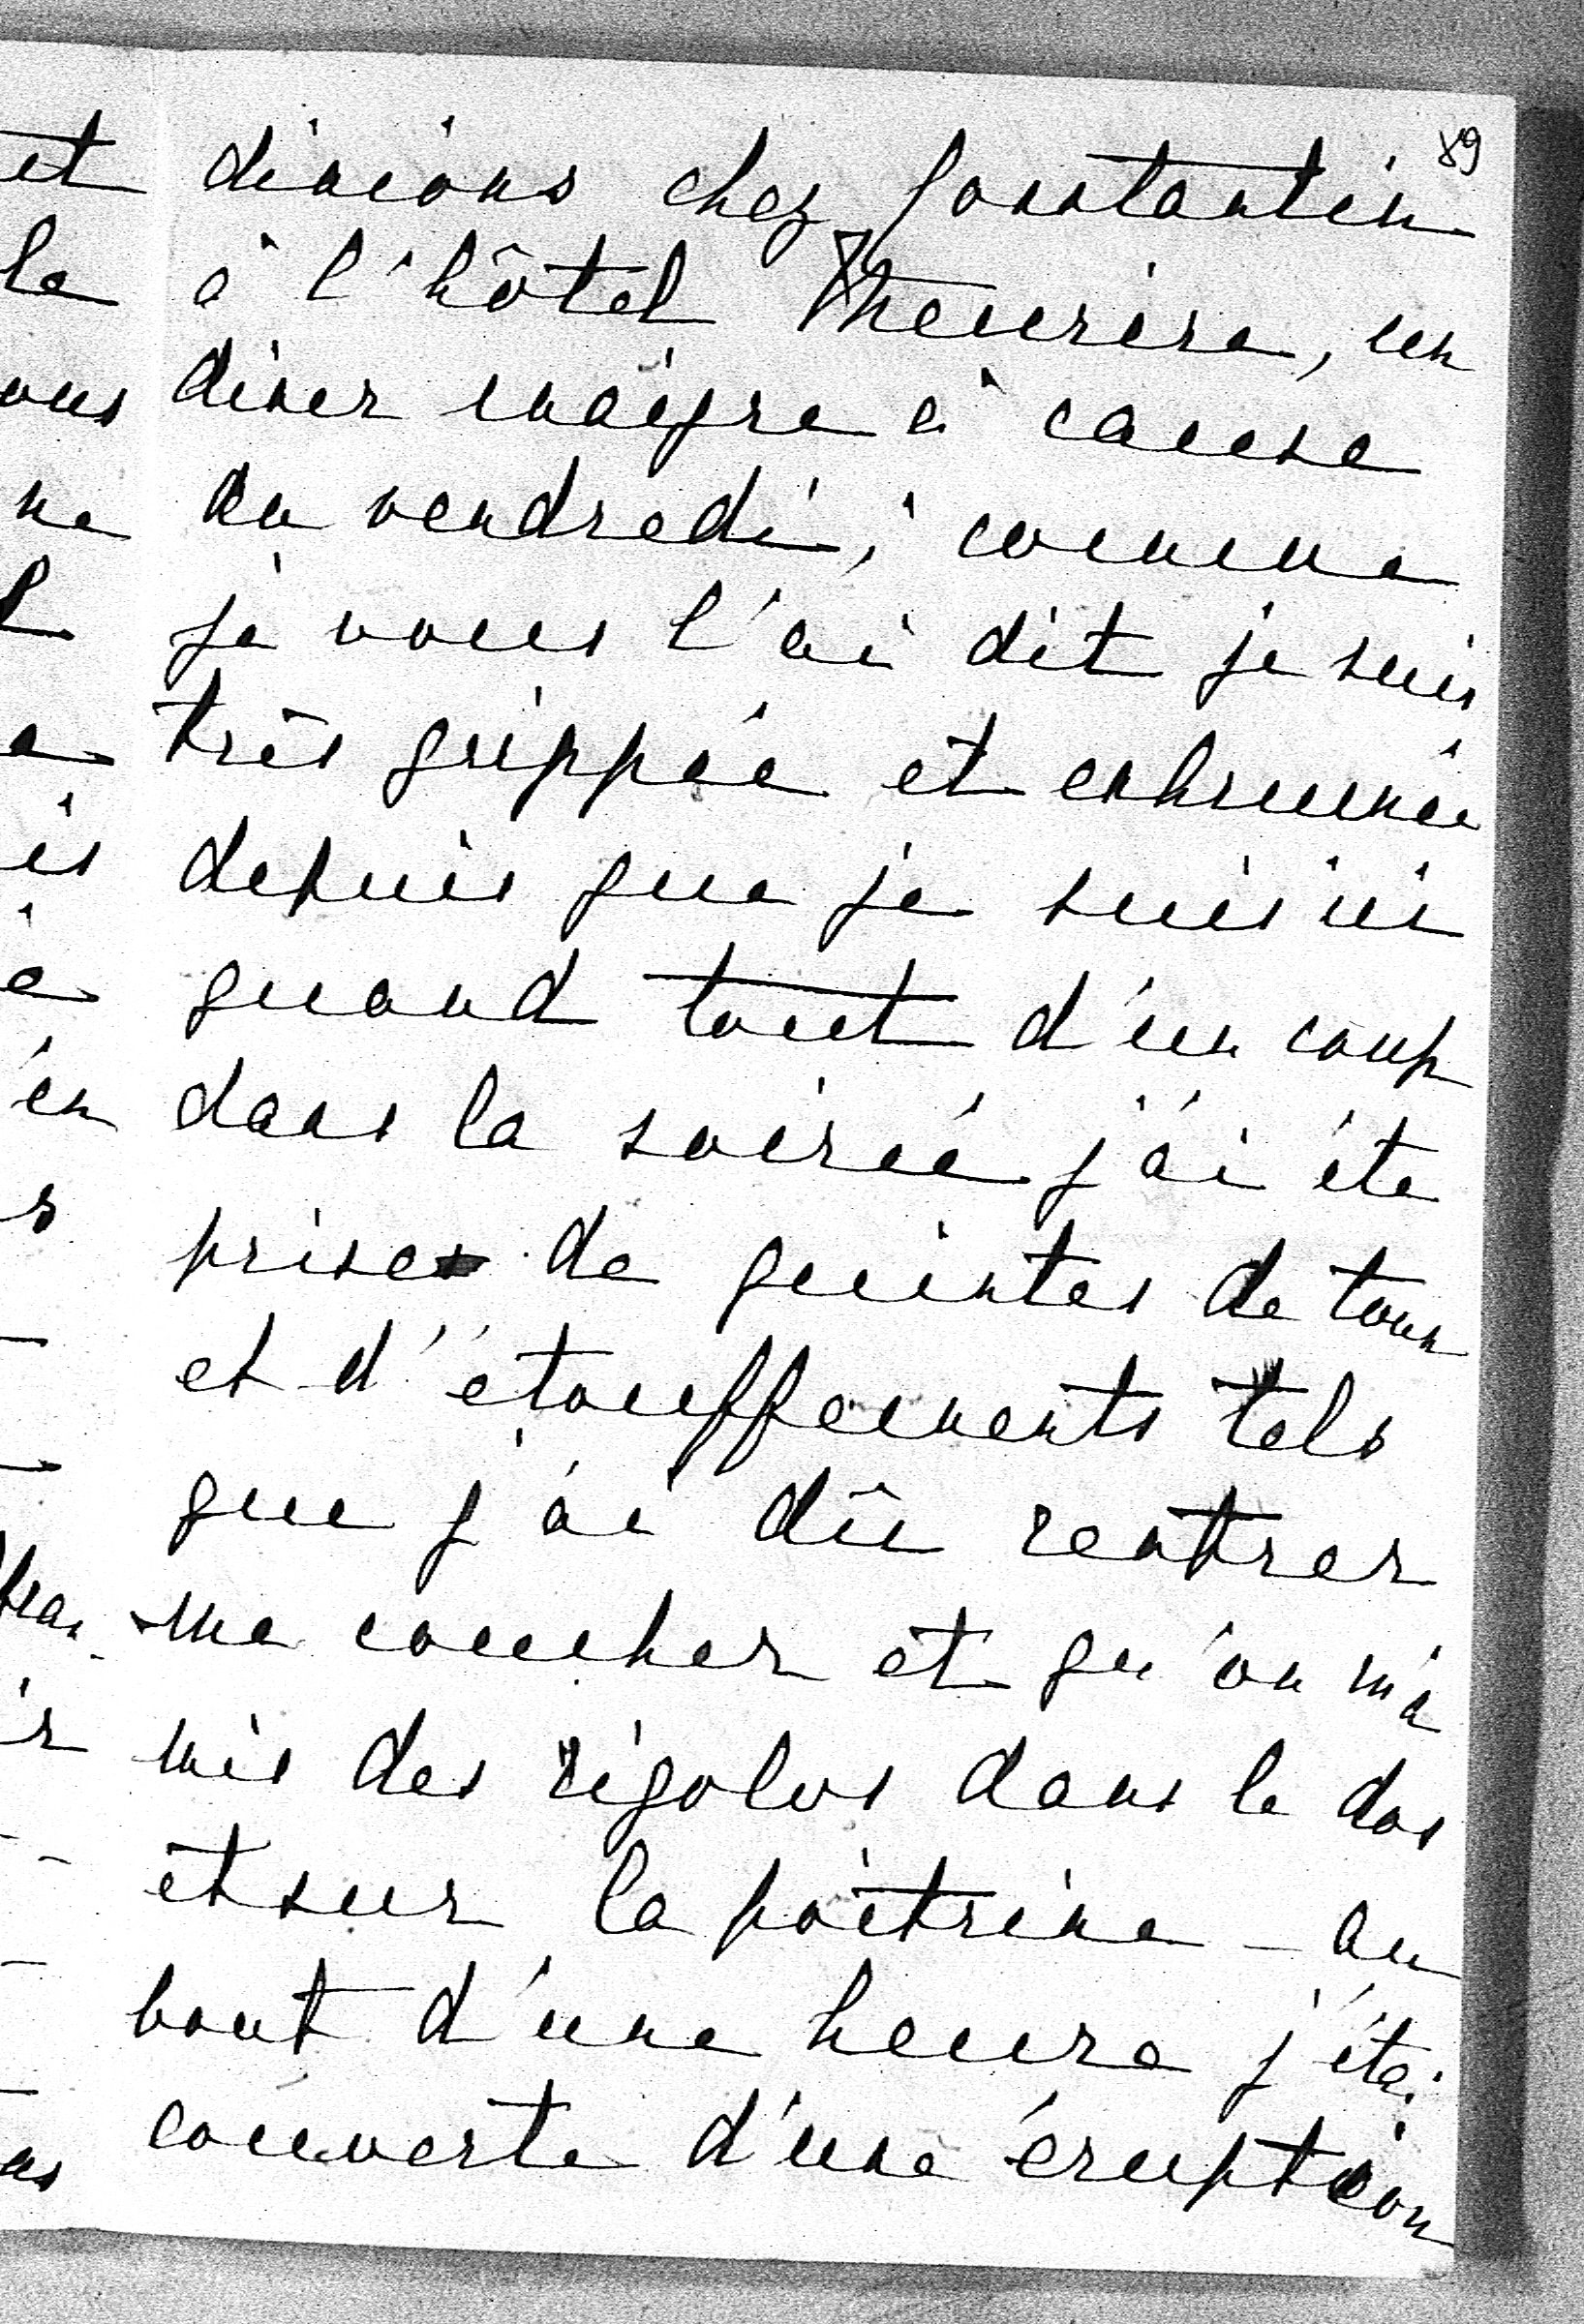 89
dinions chez Constantin
à l'hôtel Meurice, un
diner maigre à cause
du vendredi, comme
je vous l'ai dit je suis
très grippée et enhrumée
depuis que je suis ici
quand tout d'un coup
dans la soirée j'ai éte
prise de quintes de toux
et d'étouffements tels
que j'ai dû rentrer
me coucher et qu'on m'a
mis des rigolos dans le dos
et sur la poitrine - au
bout d'une heure j'étai
couverte d'une éruption
et
la
ous
ne
l
is
en
s